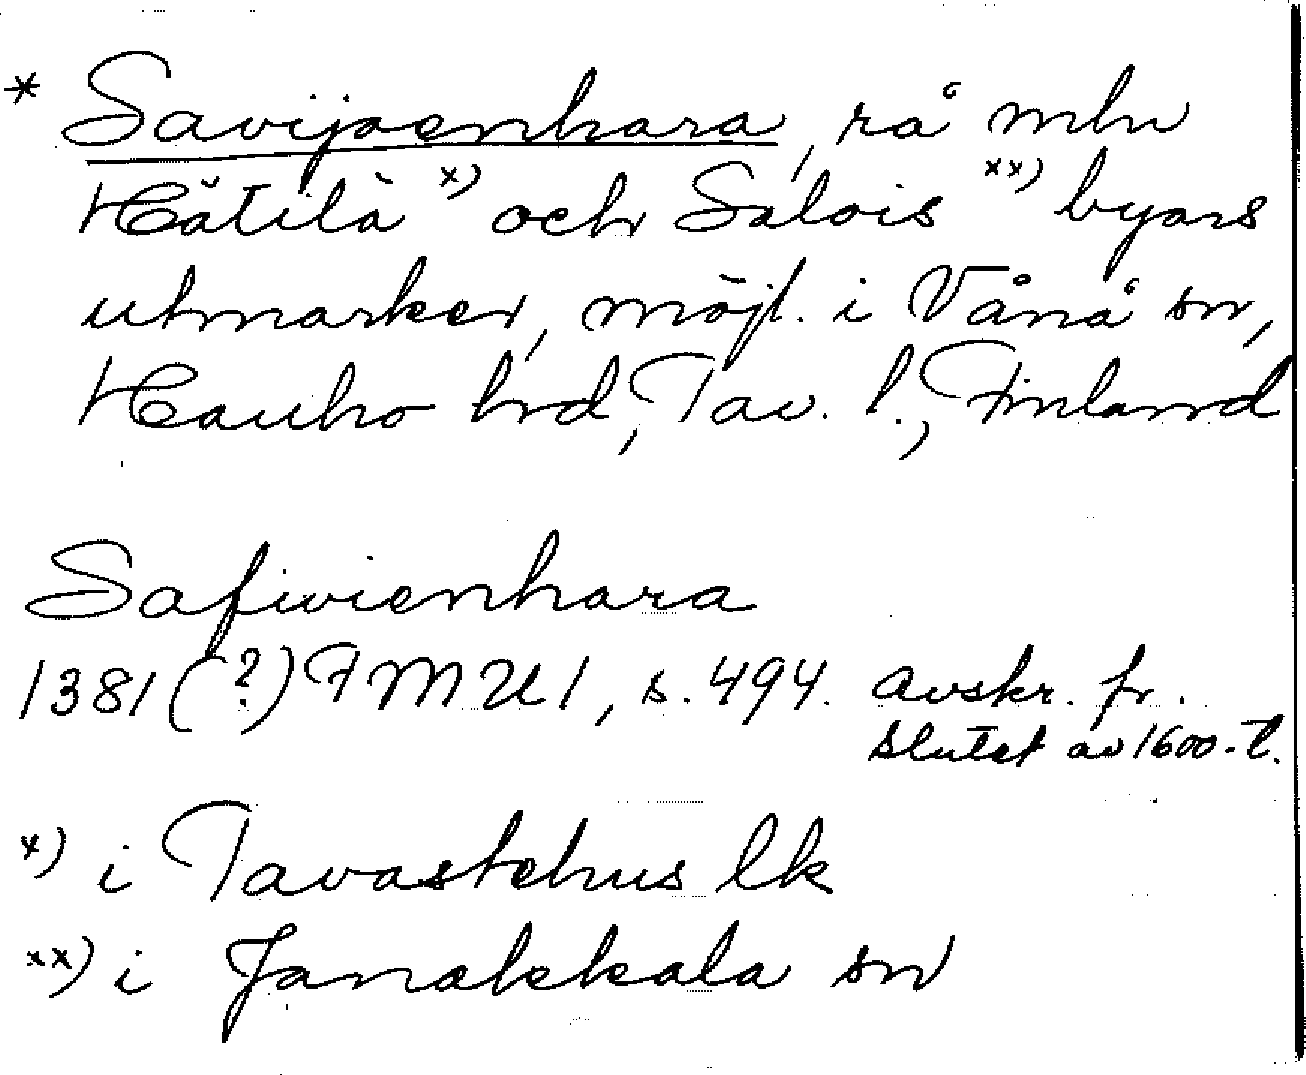 * Savijoenhara, rå mln
Hätilä x) och Salois xx) byars
utmarker, möjl. i Vånå sn,
Hauho hrd, Tav. l., Finland
Safwienhara
1381 (?) FMU 1, s. 494. Avskr. fr.
slutet av 1600-t.
x) i Tavastehus lk
xx) i Janakkala sn